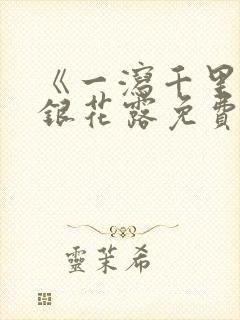 《一瀉千里
銀花露免費
靈茉希